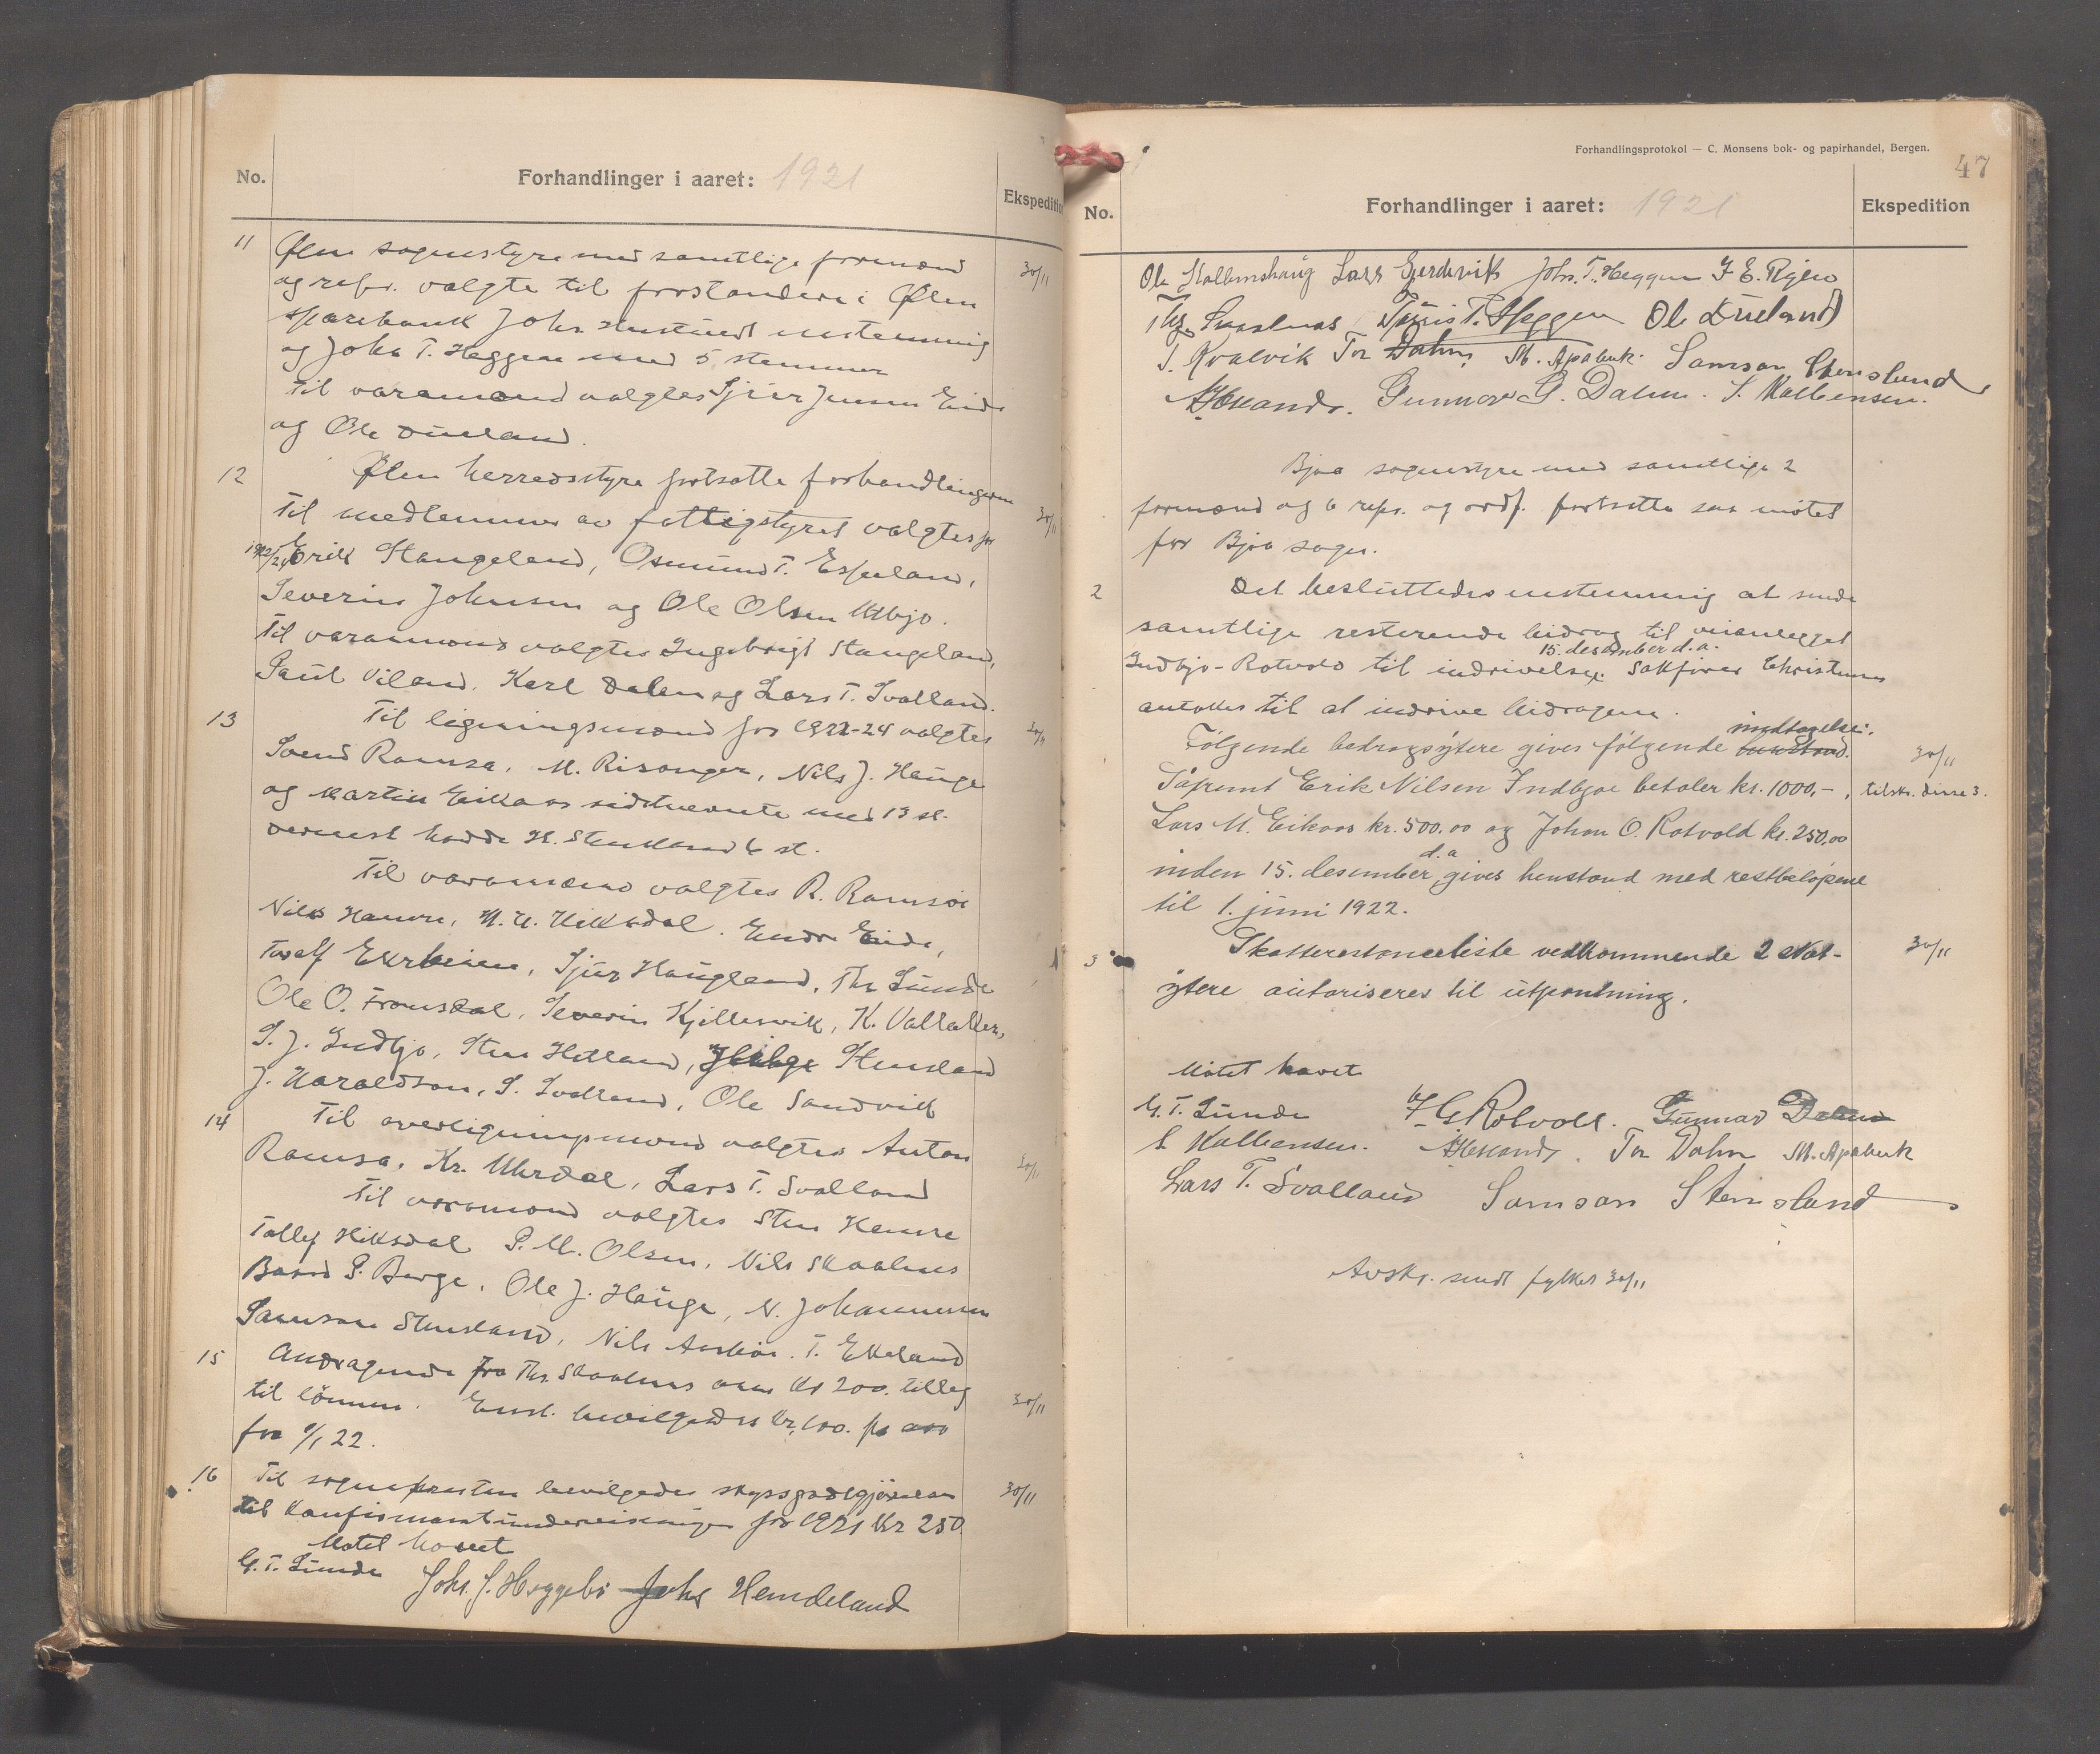 No. Forhandlinger i aaret: 1921 Ekspedition
11 Ølen sognestyre med samtlige formænd 30/11
og repr. valgte til forstandere i Ølen
sparebank Johs enstemmig
og Johs T. Heggen med 5 stemmer
til varamænd valgtes Sjur Jensen Eide
og Ole Dueland.
12 Ølen herredsstyre fortsatte forhandlingerne
Til medlemmer av fattigstyret valgtes for 30/11
1922/24 Erik Stangeland, Osmund T. Espeland,
Severin Johnsen og Ole Olsen Utbjo.
Til varamænd valgtes Ingebrigt Stangeland,
Paul Viland, Karl Dalen og Lars T. Svalland.
13 Til ligningsmænd for 1922-24 valgtes 30/11
Svend Ramsa, M. Risanger, Nils J. Hauge
og Martin Eikaas sidstnevnte med 13 st.
dernest hadde H. Stensland 6 st.
Til varamænd valgtes R. Ramsoe
Nils Hamre, H. U. Hiksdal. Endre Eide,
Taralf Ekrheim, Sjur Haugland, Thr. Lunde
Ole O. Tromsdal, Severin Kjellesvik, K. Vallaker,
S. J. Indbjo, Sten Hetland, Helge Stensland
J. Haraldson, S. Svalland, Ole Sandvik
14 Til overligningsmænd valgtes Anton
Ramsa, Kr. Uhrdal, Lars T. Svalland 30/11
Til varamænd valgtes Sten Hamre
Tollef Hiksdal P. M. Olsen, Nils Skaalnes
Baard S. Berge, Ole J. Hauge, N. Johannessen
Samson Stensland, Nils T. Ekeland
15 Andragende fra Thr. Skaalnes om kr 200. tillæg
til lønnen. Enst. bevilgedes kr. 100. pr aar 30/11
fra 1/1 22.
16 Til sognepræsten bevilgedes skyssgodtgjørelse 30/11
til konfirmantundervisningen for 1921 kr 250.
Møtet hævet
G. T. Lunde Johs. J. Heggebø Johs Hemdeland
Forhandlingsprotokol — C. Monsens bok- og papirhandel, Bergen.
47
No. Forhandlinger i aaret: 1921 Ekspedition
Ole Kallenshaug Lars Gjerdevik Johs. T. Heggen
Thr. Skaalnes Tønnes T. Heggen Ole Dueland
T. Kvalvik Tor Dahm M. Apeland Samson Stensland
Gunnar G. Dalen. S. Kalbensen.
Bjoa sognestyre med samtlige 2
formænd og 6 repr. og ordf. fortsatte saa møtet
for Bjoa sogn.
2 Det besluttedes enstemmig at sende
samtlige resterende bidrag til veianlegget
15. desember d.a.
Indbjo-Rotvold til indrivelse. Sakfører Christensen
antokes til at indrive bidragene.
indtagelse.
Følgende bedragsytere gives følgende henstand. 30/11
Tøpmt Erik Nilsen Indbjoe betaler kr. 1000,-, tilskr. disse 3.
Lars M. Eikaas kr. 500.00 og Johan O. Rotvold kr. 250,00
d.a
inden 15. desember gives henstand med restbeløpene
til 1. juni 1922.
3 Skatterestanceliste vedkommende 2 skat- 30/11
ytere autoriseres til utpantning.
Møtet hævet
G. T. Lunde G Rotvoll. Gunnar Dalen
S. Kalbensen. Tor Dahm M. Apeland
Lars T. Svalland Samson Stensland
Avskr. sendt fylket 30/11